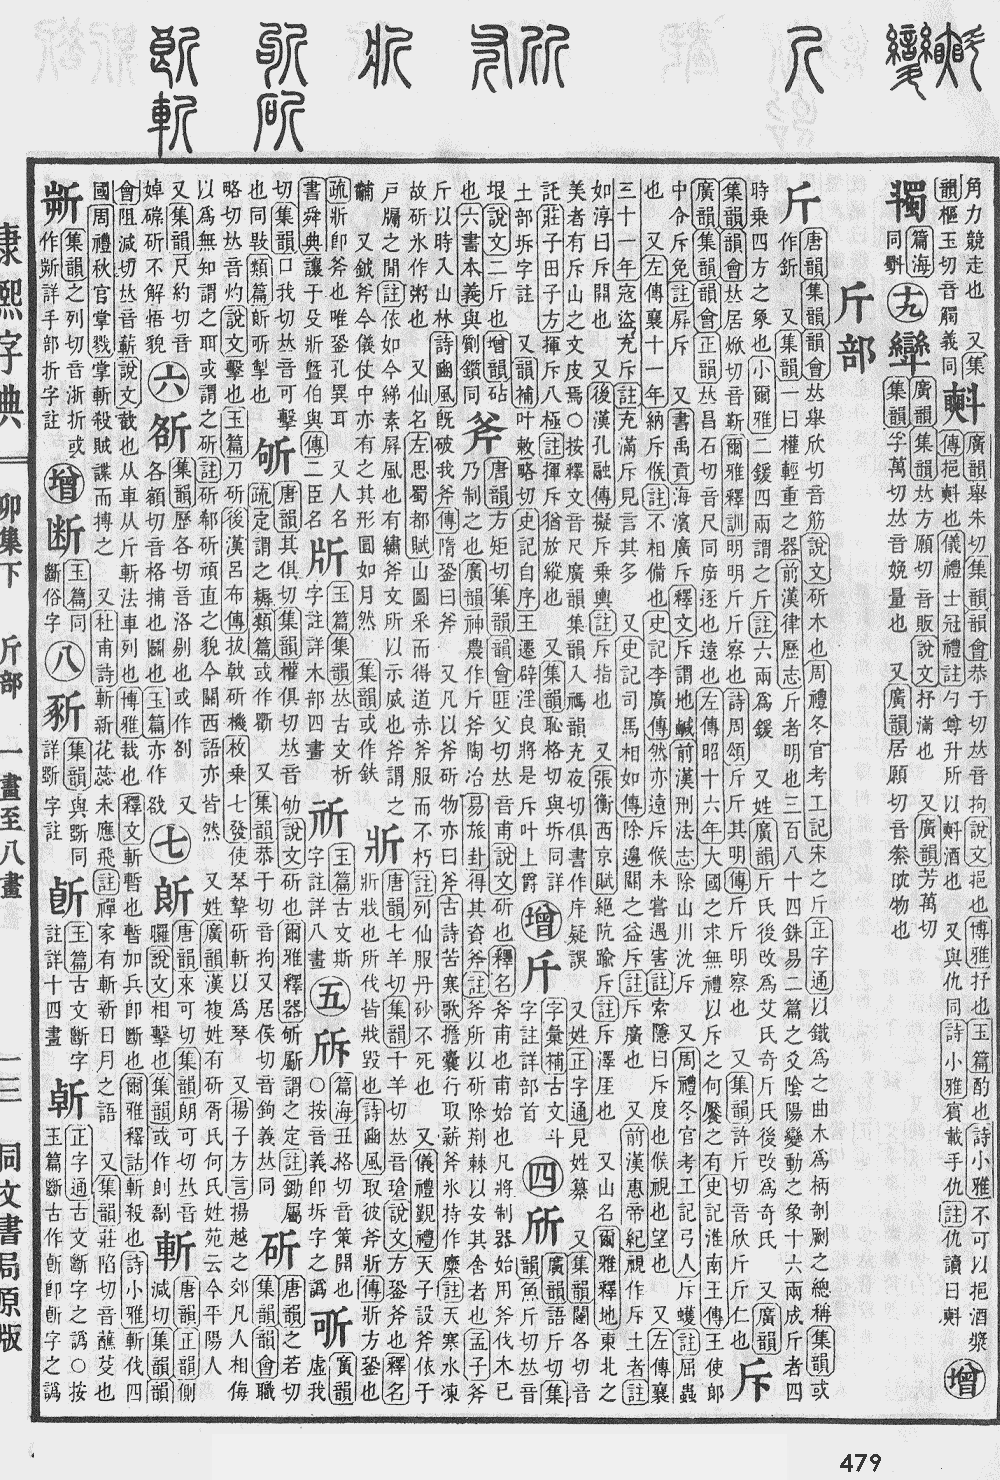 角力競走也 又集
韻樞玉切音觸義同 㪺 廣韻舉朱切集韻韻會恭于切𠀤音拘說文挹也博雅抒也玉篇酌也詩小雅不可以挹酒漿
傳挹㪺也儀禮士冠禮註勺尊升所以㪺酒也 又與仇同詩小雅賓載手仇註仇讀曰㪺 增
篇海同斣 十九 廣韻集韻𠀤方願切音販說文抒滿也 又廣韻芳萬切
集韻孚萬切𠀤音娩量也 又廣韻居願切音絭㪻物也
斤部
斤 唐韻集韻韻會𠀤舉欣切音筋說文斫木也周禮冬官考工記宋之斤正字通以鐵爲之曲木爲柄剞劂之總稱集韻或
作釿 又集韻一曰權輕重之器前漢律歷志斤者明也三百八十四銖易二篇之爻陰陽變動之象十六兩成斤者四
時乘四方之象也小爾雅二鍰四兩謂之斤註六兩爲鍰 又姓廣韻斤氏後改爲艾氏奇斤氏後改爲奇氏 又廣韻
集韻韻會𠀤居焮切音靳爾雅釋訓明明斤斤察也詩周頌斤斤其明傳斤斤明察也 又集韻許斤切音欣斤斤仁也 斥
廣韻集韻韻會正韻𠀤昌石切音尺同㡿逐也遠也左傳昭十六年大國之求無禮以斥之何饜之有史記淮南王傳王使郎
中令斥免註屛斥 又書禹貢海濱廣斥釋文斥謂地鹹前漢刑法志除山川沈斥 又周禮冬官考工記弓人斥蠖註屈蟲
也 又左傳襄十一年納斥候註不相備也史記李廣傳然亦遠斥候未嘗遇害註索隱曰斥度也候視也望也 又左傳襄
三十一年寇盜充斥註充滿斥見言其多 又史記司馬相如傳除邊關之益斥註斥廣也 又前漢惠帝紀視作斥土者註
如淳曰斥開也 又後漢孔融傳擬斥乘輿註斥指也 又張衡西京賦絕阬踰斥註斥澤厓也 又山名爾雅釋地東北之
美者有斥山之文皮焉○按釋文音尺廣韻集韻入禡韻充夜切俱書作㡿疑誤 又姓正字通見姓纂 又集韻闥各切音
託莊子田子方揮斥八極註揮斥猶放縱也 又集韻恥格切與坼同詳
土部坼字註 又韻補叶敕略切史記自序王遷辟淫良將是斥叶上爵 增 字彙補古文斗
字註詳部首 四 斦 廣韻語斤切集
韻魚斤切𠀤音
垠說文二斤也增韻砧
也六書本義與劉鑕同 斧 唐韻方矩切集韻韻會匪父切𠀤音甫說文斫也釋名斧甫也甫始也凡將制器始用斧伐木已
乃制之也廣韻神農作斤斧陶冶易旅卦得其資斧註斧所以斫除荆棘以安其舍者也孟子斧
斤以時入山林詩豳風旣破我斧傳隋銎曰斧 又凡以斧斫物亦曰斧古詩苦寒歌擔囊行取薪斧氷持作糜註天寒水凍
故斫氷作粥也 又仙名左思蜀都賦山圖采而得道赤斧服而不朽註列仙服丹砂不死也 又儀禮覲禮天子設斧依于
戶牖之閒註依如今綈素屏風也有繡斧文所以示威也斧謂之
黼 又鉞斧今儀仗中亦有之其形圓如月然 集韻或作鈇 斨 唐韻七羊切集韻千羊切𠀤音瑲說文方銎斧也釋名
斨戕也所伐皆戕毀也詩豳風取彼斧斨傳斨方銎也
疏斨卽斧也唯銎孔異耳 又人名
書舜典讓于殳斨曁伯與傳二臣名 玉篇集韻𠀤古文析
字註詳木部四畫 玉篇古文斯
字註詳八畫 五 篇海丑格切音策開也
○按音義卽坼字之譌 㪃 廣韻
虛我
切集韻口我切𠀤音可擊
也同𢻃類篇㪃斫掣也 斪 唐韻其俱切集韻權俱切𠀤音劬說文斫也爾雅釋器斪斸謂之定註鋤屬
疏定謂之耨類篇或作斸 又集韻恭于切音拘又居侯切音鉤義𠀤同 斫 唐韻之若切
集韻韻會職
略切𠀤音灼說文擊也玉篇刀斫後漢呂布傳拔戟斫機枚乘七發使琴摯斫斬以爲琴 又揚子方言揚越之郊凡人相侮
以爲無知謂之聑或謂之斫註斫郤斫頑直之貌今關西語亦皆然 又姓廣韻漢複姓有斫胥氏何氏姓苑云今平陽人
又集韻尺約切音
婥䃗斫不解悟貌 六 㪾 集韻歷各切音洛剔也或作剖 又
各額切音格捕也鬭也玉篇亦作敋 七 唐韻來可切集韻朗可切𠀤音
㰁說文相擊也集韻或作𠛎㔏 斬 唐韻正韻側
減切集韻韻
會阻減切𠀤音蔪說文截也从車从斤斬法車列也博雅裁也釋文斬暫也暫加兵卽斷也爾雅釋詁斬殺也詩小雅斬伐四
國周禮秋官掌戮掌斬殺賊諜而搏之 又杜甫詩斬新花蕊未應飛註禪家有斬新日月之語 又集韻莊陷切音蘸芟也
集韻之列切音淅折或
作𣂪詳手部折字註 增 断 玉篇同
斷俗字 八 集韻與斲同
詳斲字註 玉篇古文斷字
註詳十四畫 正字通古文斷字之譌○按
玉篇斷古作𣂢卽𣂢字之譌
康熙字典
卯集下 斤部 一畫至八畫
一三 同文書局原版
479